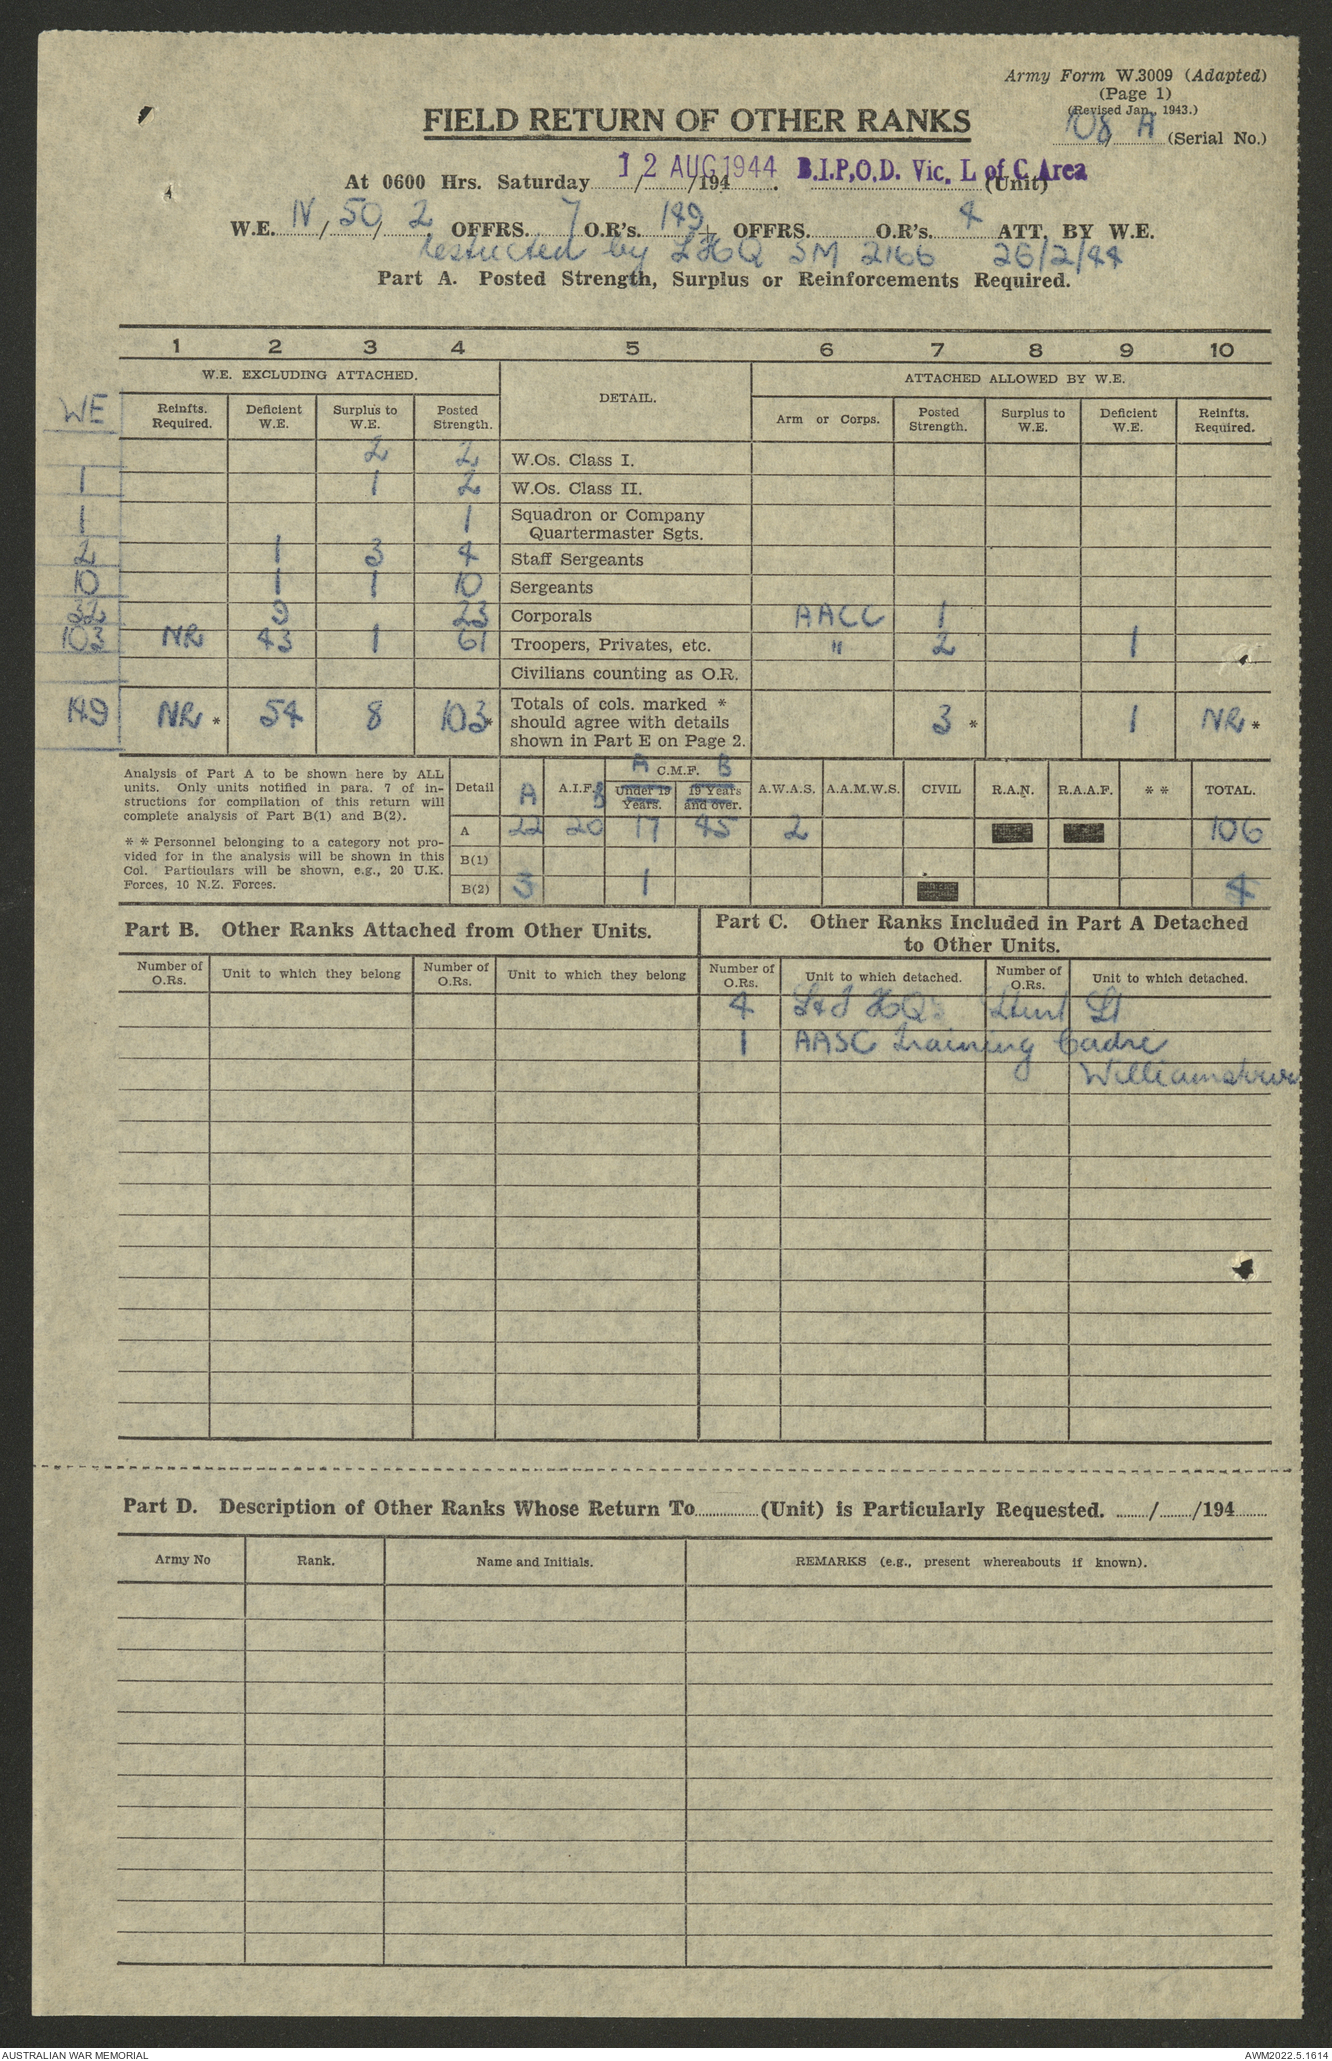 Army Form W.3009 (Adapted)
(Page 1)
(Revised Jan., 1943.)
FIELD RETURN OF OTHER RANKS
108 / A (Serial No.)
At 0600 Hrs. Saturday 12 AUG 1944 /194 . B.I.P.O.D. Vic. L of C Area (Unit)
W.E. IV / 50 / 2 OFFRS. 7 O.R's. 149 + OFFRS. O.R's. 4 ATT. BY W.E.
restricted by LHQ SM 2166 26/2/44
Part A. Posted Strength, Surplus or Reinforcements Required.
1 2 3 4 5 6 7 8 9 10
W.E. EXCLUDING ATTACHED. DETAIL. ATTACHED ALLOWED BY W.E.
WE Reinfts. Required. Deficient W.E. Surplus to W.E. Posted Strength. Arm or Corps. Posted Strength. Surplus to W.E. Deficient W.E. Reinfts. Required.
2 2 W.Os. Class I.
1 1 2 W.Os. Class II.
1 1 Squadron or Company
Quartermaster Sgts.
2 1 3 4 Staff Sergeants
10 1 1 10 Sergeants
32 9 23 Corporals AACC 1
103 NR 43 1 61 Troopers, Privates, etc. " 2 1
Civilians counting as O.R.
149 NR * 54 8 103 * Totals of cols. marked * 3 * 1 NR *
should agree with details
shown in Part E on Page 2.
Analysis of Part A to be shown here by ALL
units. Only units notified in para. 7 of in-
structions for compilation of this return will
complete analysis of Part B(1) and B(2).
* * Personnel belonging to a category not pro-
vided for in the analysis will be shown in this
Col. Particulars will be shown, e.g., 20 U.K.
Forces, 10 N.Z. Forces.
A C.M.F. B
Detail A A.I.F. B Under 19 Years. 19 Years and over. A.W.A.S. A.A.M.W.S. CIVIL R.A.N. R.A.A.F. * * TOTAL.
A 22 20 17 45 2 106
B(1)
B(2) 3 1 4
Part B. Other Ranks Attached from Other Units.
Part C. Other Ranks Included in Part A Detached
to Other Units.
Number of O.Rs. Unit to which they belong Number of O.Rs. Unit to which they belong Number of O.Rs. Unit to which detached. Number of O.Rs. Unit to which detached.
4 HQ St
1 AASC Training Cadre
Williamstown
Part D. Description of Other Ranks Whose Return To (Unit) is Particularly Requested. / /194
Army No Rank. Name and Initials. REMARKS (e.g., present whereabouts if known).
AUSTRALIAN WAR MEMORIAL AWM2022.5.1614